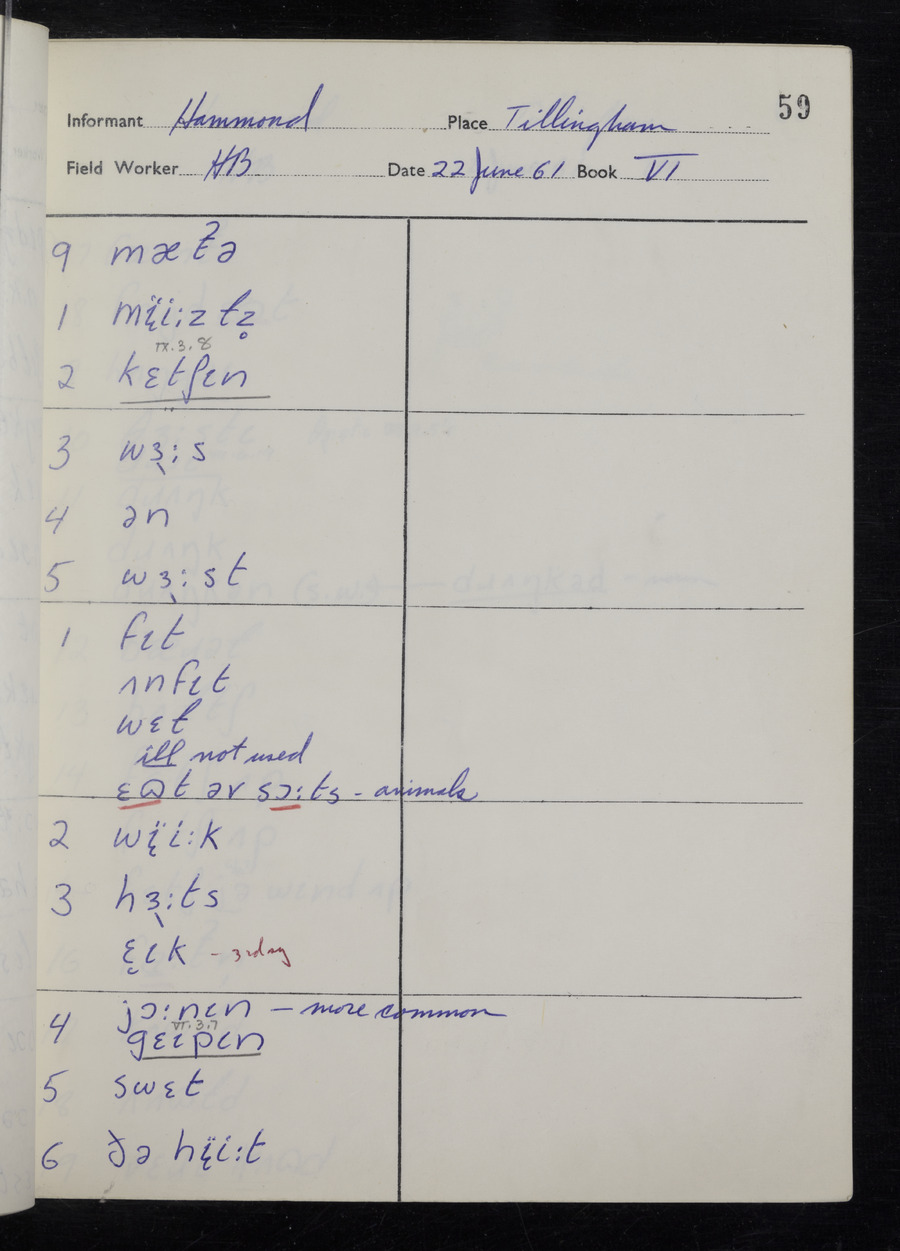 59
Informant Hammond Place Tillingham
Field Worker HB Date 22 June 61 Book VI
9 mætʔə
1 mɪ̈i:zl̩z̥
IX.3.8
2 kɛtʃɪn
3 wɜ̖:s
4 ən
5 wɜ̖:st
1 fɪt
ʌnfɪt
wɛɫ
ill not used
ɛɷt əv sɔ:ts - animals
2 wɪ̈i:k
3 hɜ̖:ts
ɛ̝ɪk - 3rd ay
4 jɔ:nɪn - more common
VI.3.7
gɛɪpɪn
5 swɛt
6 ðə hɪ̈i:t